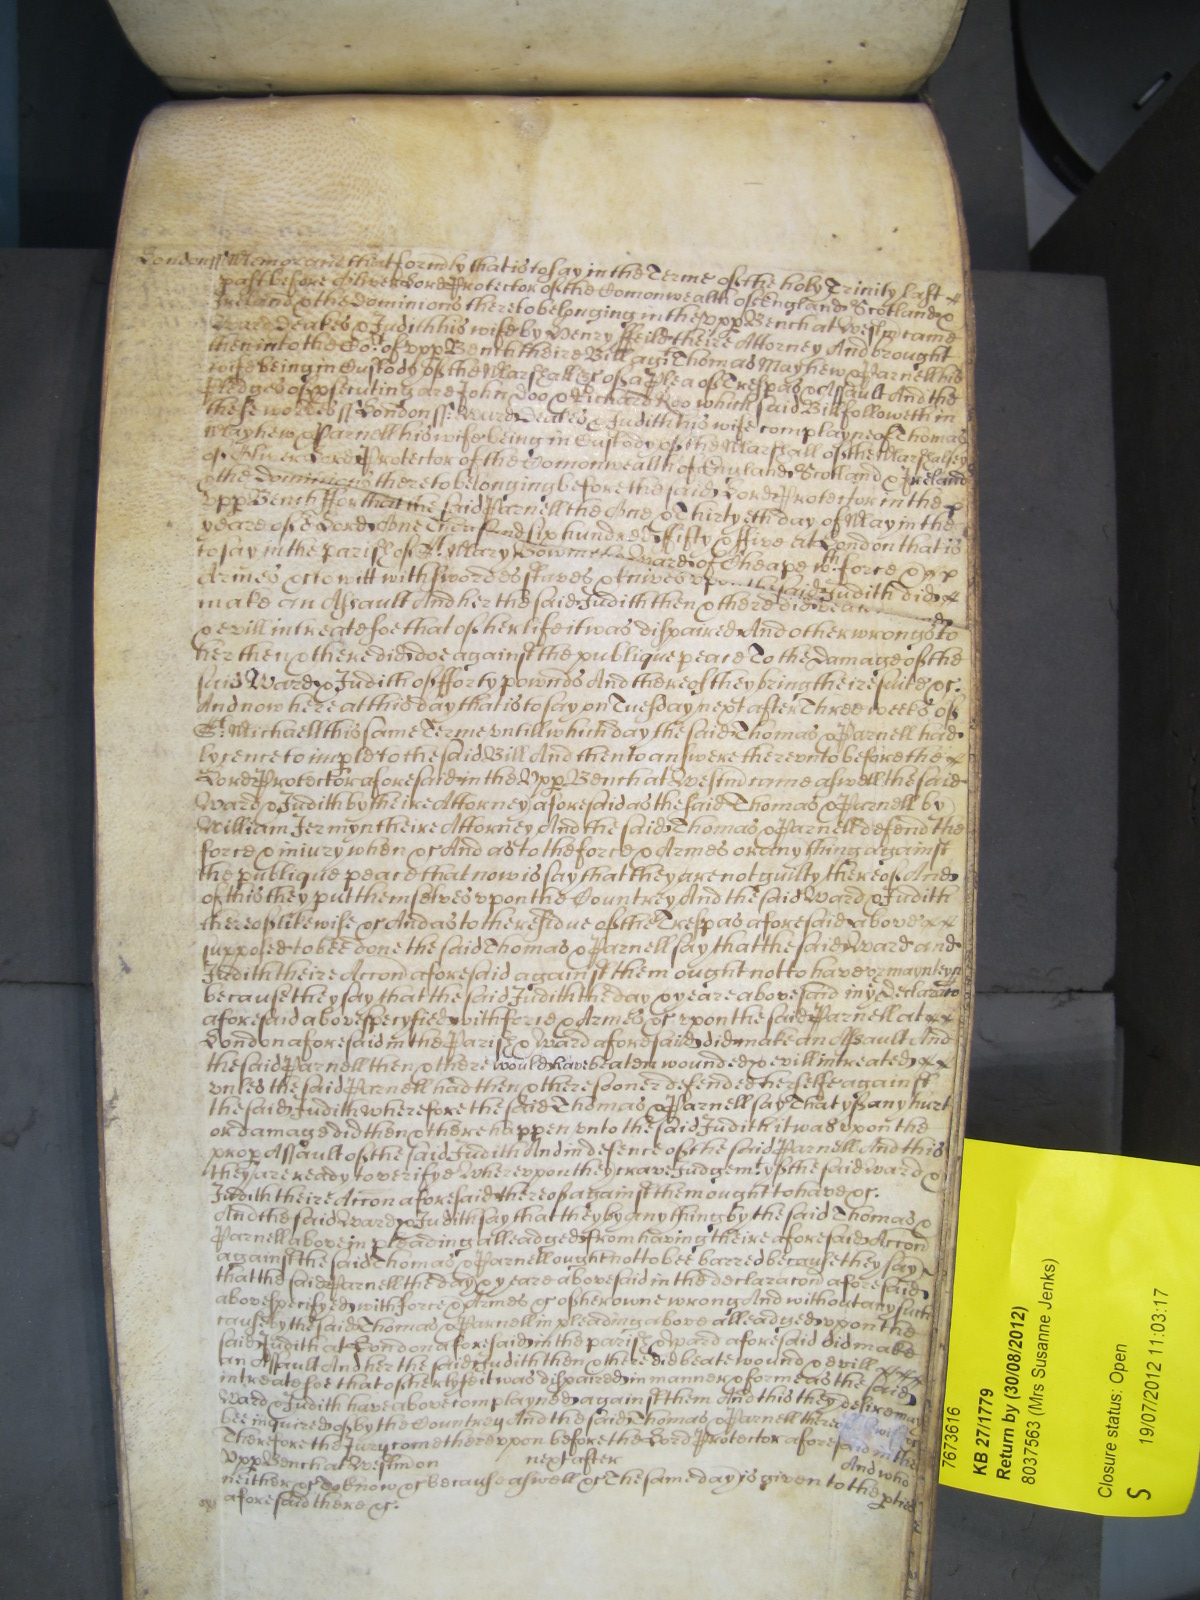 London ss Memorand that formerly that is to say in the Terme of the holy Trinity last
past before Oliver Lord Protector of the Comonwealth of England Scotland &
Ireland & the dominions thereto belonging in the Upp Bench at Westm came
Ward Deakes & Judith his wife by Henry Feild theire Attorney And brought
then into the Co:rt of Upp Bench theire Bill agt Thomas Mayhew & Parnell his
wife being in Custody of the Marshall &c of a Plea of Trespas & Assault And the
Pledges of psecuting are John Doo & Richard Roo which said Bill followeth in
these wordes ss London ss: Ward Deakes & Judith his wife complayne of Thomas
Mayhew & Parnell his wife being in Custody of the Marshall of the Marshalsey
of Oliver Lord Protector of the Comonwealth of England Scotland & Ireland
& the Dominions thereto belonging before the said Lord Protector in the
Upp Bench ffor that the said Parnell the One & Thirtyeth day of May in the
yeare of o:r Lord One Thousand six hundred ffifty & ffive At London that is
to say in the parish of St Mary Bow in the Ward of Cheape wth force &
Armes &c to witt with swordes staves & knives upon the said Judith did
make an Assault And her the said Judith then & there did beate
& evill intreate soe that of her life it was dispaired And other wrongs to
her then & there did doe against the publique peace To the Damage of the
said Ward & Judith of fforty pownds And thereof they bring theire suite &c.
And now here at this day that is to say on Tuesday next after Three weekes of
St. Michaell this same Terme untill which day the said Thomas & Parnell had
lycence to impld to the said Bill And then to answere thereunto before the
Lord Protector aforesaid in the Upp Bench at Westm came aswell the said
Ward & Judith by theire Attorney aforesaid as the said Thomas & Parnell by
William Jermyn theire Attorney And the said Thomas & Parnell defend the
force & iniury when &c And as to the force & Armes or any thing against
the publique peace that now is say that they are not guilty thereof And
of this they put themselves upon the Countrey And the said Ward & Judith
thereof likewise &c And as to the residue of the Trespas aforesaid above
supposed to bee done the said Thomas & Parnell say that the said Ward and
Judith theire Accon aforesaid against them ought not to have or maynteyn
because they say that the said Judith the day & yeare abovesaid in ye Declaracon
aforesaid above specyfied with force & Armes &c upon the said Parnell at
London aforesaid in the Parish & Ward aforesaid did make an Assault And
the said Parnell then & there would have beaten wounded & evill intreated
unles the said Parnell had then & there sooner defended herselfe against
the said Judith wherefore the said Thomas & Parnell say That yf any hurt
or damage did then & there happen unto the said Judith it was upon the
prop Assault of the said Judith And in defence of the said Parnell And this
they are ready to verifye Whereupon they crave Judgemt. yf the said Ward &
Judith theire Accon aforesaid thereof against them ought to have &c.
And the said Ward & Judith say that they by any thing by the said Thomas &
Parnell above in pleading alleadged from having theire aforesaid Accon
against the said Thomas & Parnell ought not to bee barred because they say
that the said Parnell the day & yeare abovesaid in the declaracon aforesaid
above specifyed with force & Armes &c of her owne wrong And without any such
cause by the said Thomas & Parnell in pleading above alleadged upon the
said Judith at London aforesaid in the parish & Ward aforesaid did make
an Assault And her the said Judith then & there did beate wound & evill
intreate soe that of her lyfe it was dispaired in manner & forme as the said
Ward & Judith have above complayned against them And this they desire may
bee inquired of by the Countrey And the said Thomas & Parnell thereof likewise &c
Therefore the Jury come thereupon before the Lord Protector aforesaid in the
Upp Bench at Westm on next after And who
neither &c To know &c because aswell &c The same day is given to the pties
aforesaid there &c.
7673616
KB 27/1779
Return by (30/08/2012)
8037563 (Mrs Susanne Jenks)
Closure status: Open
S 19/07/2012 11:03:17